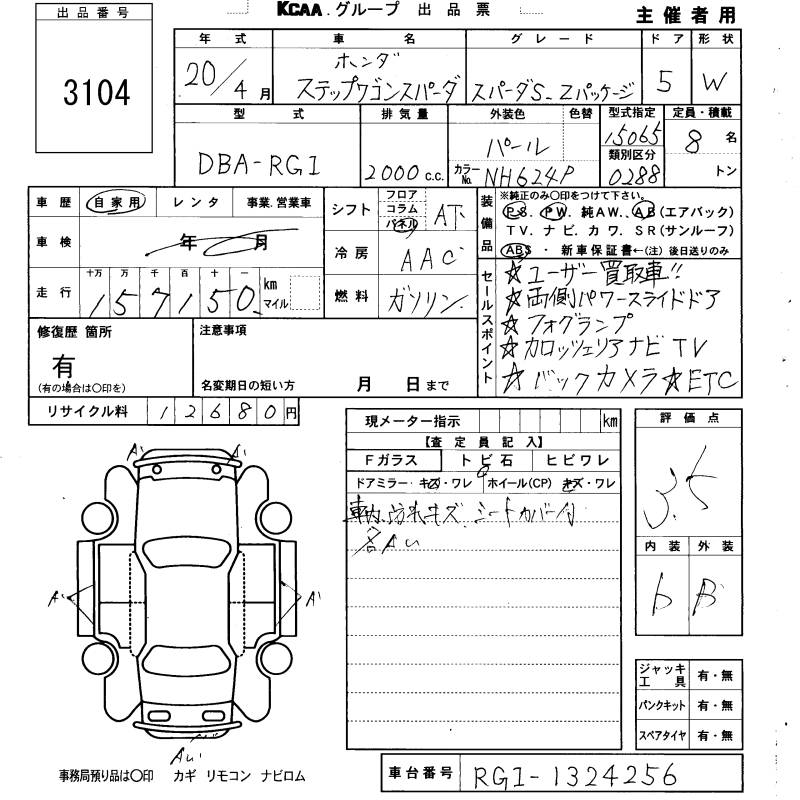 出品番号
3104
KCAA.グループ 出品票
主催者用
年式 車名 グレード ドア 形状
20/4月 ホンダ
ステップワゴンスパーダ スパーダS-Zパッケージ 5 W
型式 排気量 外装色 色替 型式指定 定員・積載
DBA-RG1 2000c.c. パール 15065 8名
類別区分
カラーNo. NH624P 0288 トン
車歴 自家用 レンタ 事業.営業車
シフト フロア コラム パネル AT
装備品
※純正のみ〇印をつけて下さい。
P.S. P.W. 純AW. AB(エアバック)
T V. ナ ビ. カ ワ. S R(サンルーフ)
ABS ・ 新車保証書←(注)後日送りのみ
車検 年 月
冷房 AAC
走行 十万 万 千 百 十 一
157150 km マイル
燃料 ガソリン
セールスポイント
☆ユーザー買取車!!
☆両側パワースライドドア
☆フォグランプ
☆カロッツェリアナビTV
☆バックカメラ☆ETC
修復歴 箇所
有
(有の場合は〇印を)
注意事項
名変期日の短い方 月 日まで
リサイクル料 12680円
現メーター指示 km
【査定員記入】
Fガラス トビ石 ヒビワレ
ドアミラー・キズ・ワレ ホイール(CP) キズ・ワレ
車内、汚れキズ シートカバー付
各A
評価点
3.5
内装 外装
b B
A A A A
ジャッキ工具 有・無
パンクキット 有・無
スペアタイヤ 有・無
事務局預り品は〇印 カギ リモコン ナビロム
車台番号 RG1-1324256